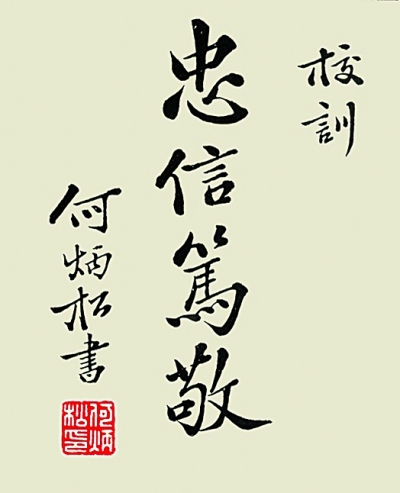 校訓
忠信篤敬
何炳松書
何炳
松印